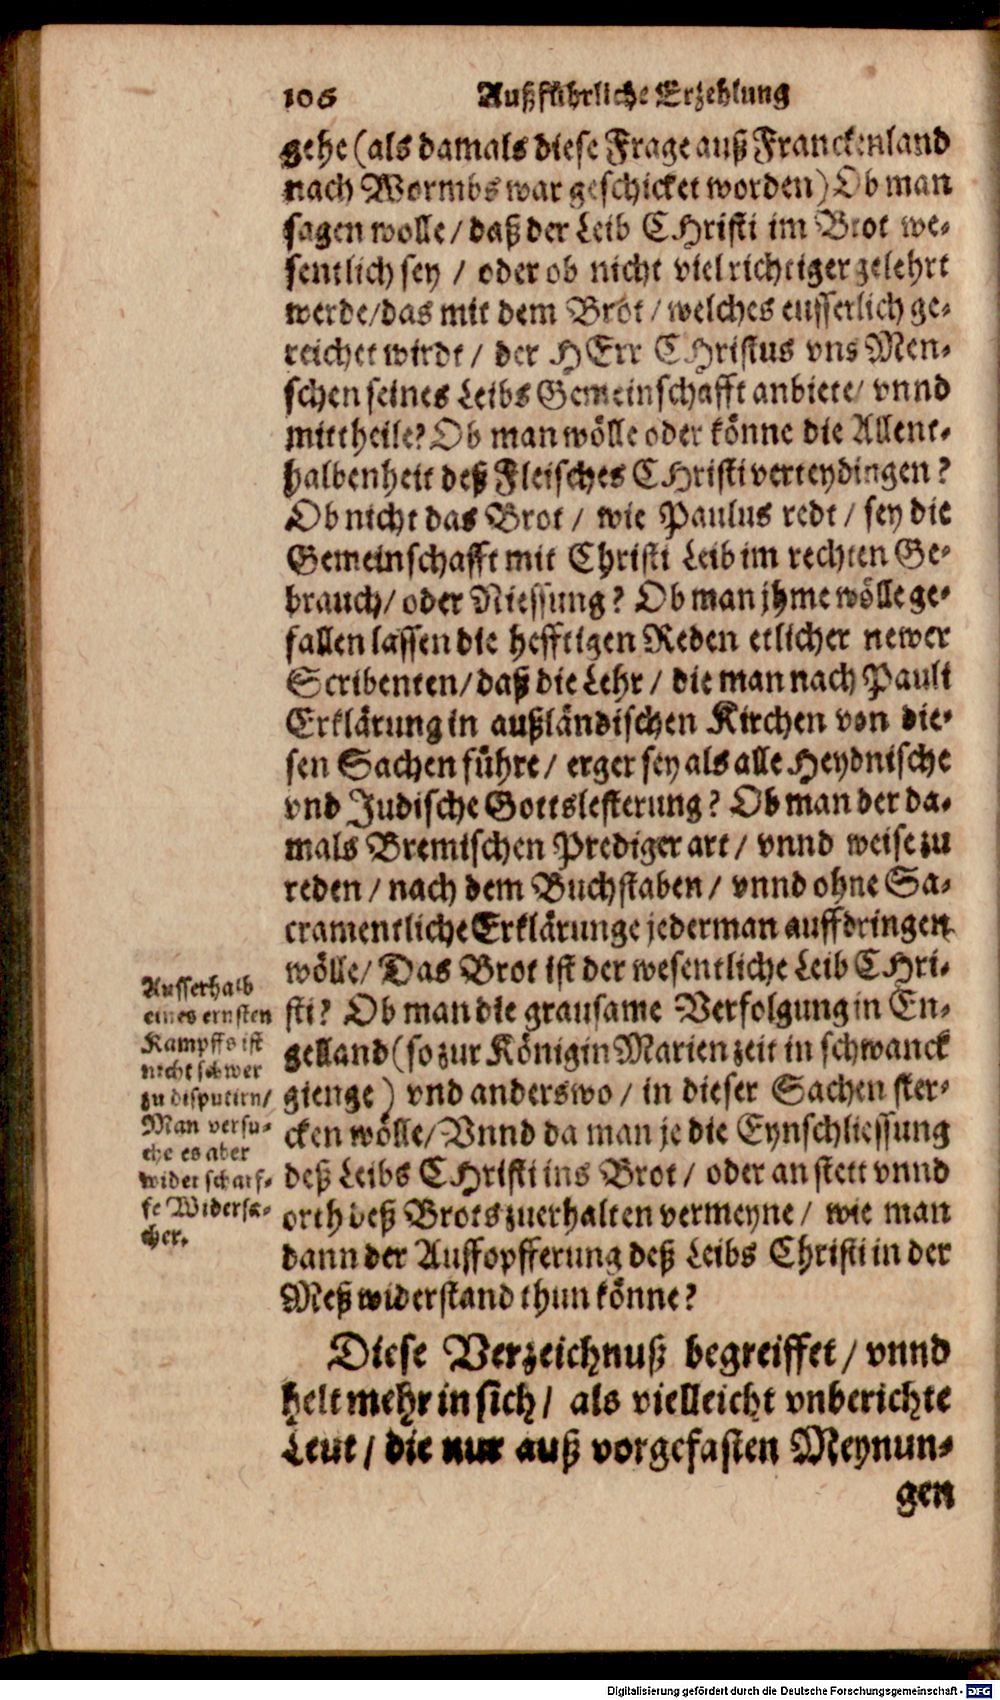 106 Außführliche Erzehlung
gehe (als damals diese Frage auß Franckenland
nach Wormbs war geschicket worden) Ob man
sagen wolle / daß der Leib CHristi im Brot we-
sentlich sey / oder ob nicht viel richtiger gelehrt
werde / das mit dem Brot / welches eusserlich ge-
reichet wirdt / der HErr CHristus vns Men-
schen seines Leibs Gemeinschafft anbiete / vnnd
mittheile? Ob man wölle oder könne die Allent-
halbenheit deß Fleisches CHristi verteydingen?
Ob nicht das Brot / wie Paulus redt / sey die
Gemeinschafft mit Christi Leib im rechten Ge-
brauch / oder Niessung? Ob man jhme wölle ge-
fallen lassen die hefftigen Reden etlicher newer
Scribenten / daß die Lehr / die man nach Pauli
Erklärung in außländischen Kirchen von die-
sen Sachen führe / erger sey als alle Heydnische
vnd Judische Gottslesterung? Ob man der da-
mals Bremischen Prediger art / vnnd weise zu
reden / nach dem Buchstaben / vnnd ohne Sa-
cramentliche Erklärunge jederman auffdringen
wölle / Das Brot ist der wesentliche Leib CHri-
sti? Ob man die grausame Verfolgung in En-
gelland (so zur Königin Marien zeit in schwanck
gienge) vnd anderswo / in dieser Sachen ster-
cken wölle / Vnnd da man je die Eynschliessung
deß Leibs CHristi ins Brot / oder an stett vnnd
orth deß Brots zuerhalten vermeyne / wie man
dann der Auffopfferung deß Leibs Christi in der
Meß widerstand thun könne?
Ausserhalb
eines ernsten
Kampffs ist
nicht schwer
zu disputirn /
Man versu-
che es aber
wider scharf-
fe Widersa-
cher.
Diese Verzeichnuß begreiffet / vnnd
helt mehr in sich / als vielleicht vnberichte
Leut / die nur auß vorgefasten Meynun-
gen
Digitalisierung gefördert durch die Deutsche Forschungsgemeinschaft - DFG